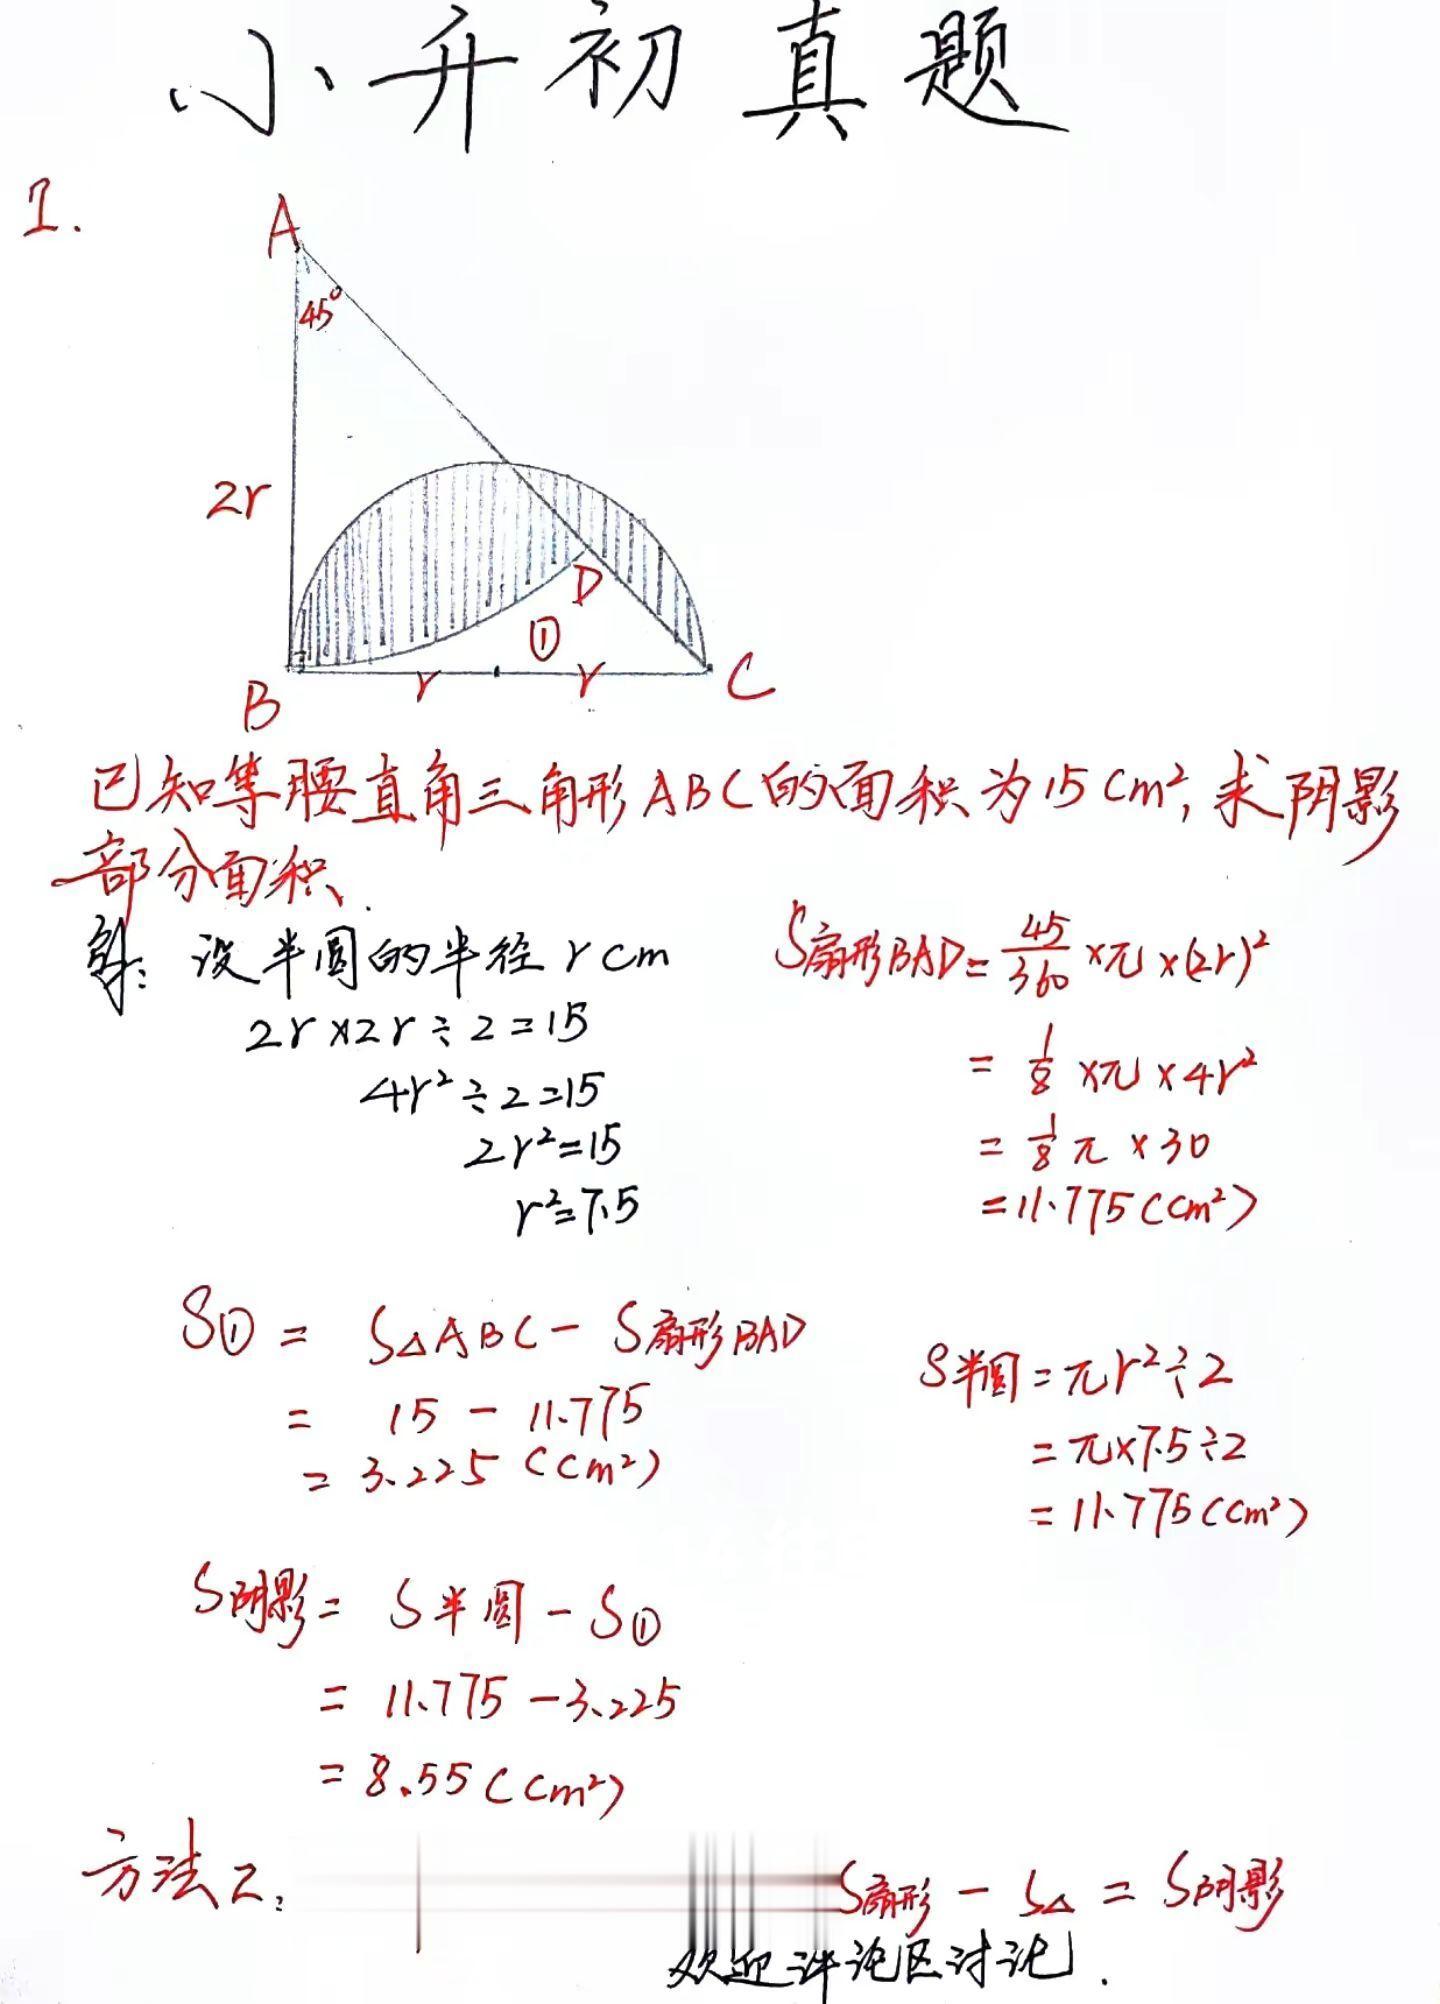 小升初真题
1.
A
45°
2r
D
①
B
r
r
C
已知等腰直角三角形ABC的面积为15cm²,求阴影
部分面积.
解: 设半圆的半径rcm
2r×2r÷2=15
4r²÷2=15
2r²=15
r²=7.5
S扇形BAD=45/360×π×(2r)²
=1/8×π×4r²
=1/8π×30
=11.775(cm²)
S① = S△ABC-S扇形BAD
= 15-11.775
=3.225(cm²)
S半圆=πr²÷2
=π×7.5÷2
=11.775(cm²)
S阴影= S半圆-S①
= 11.775-3.225
=8.55(cm²)
方法2:
S扇形-S△=S阴影
欢迎评论区讨论.